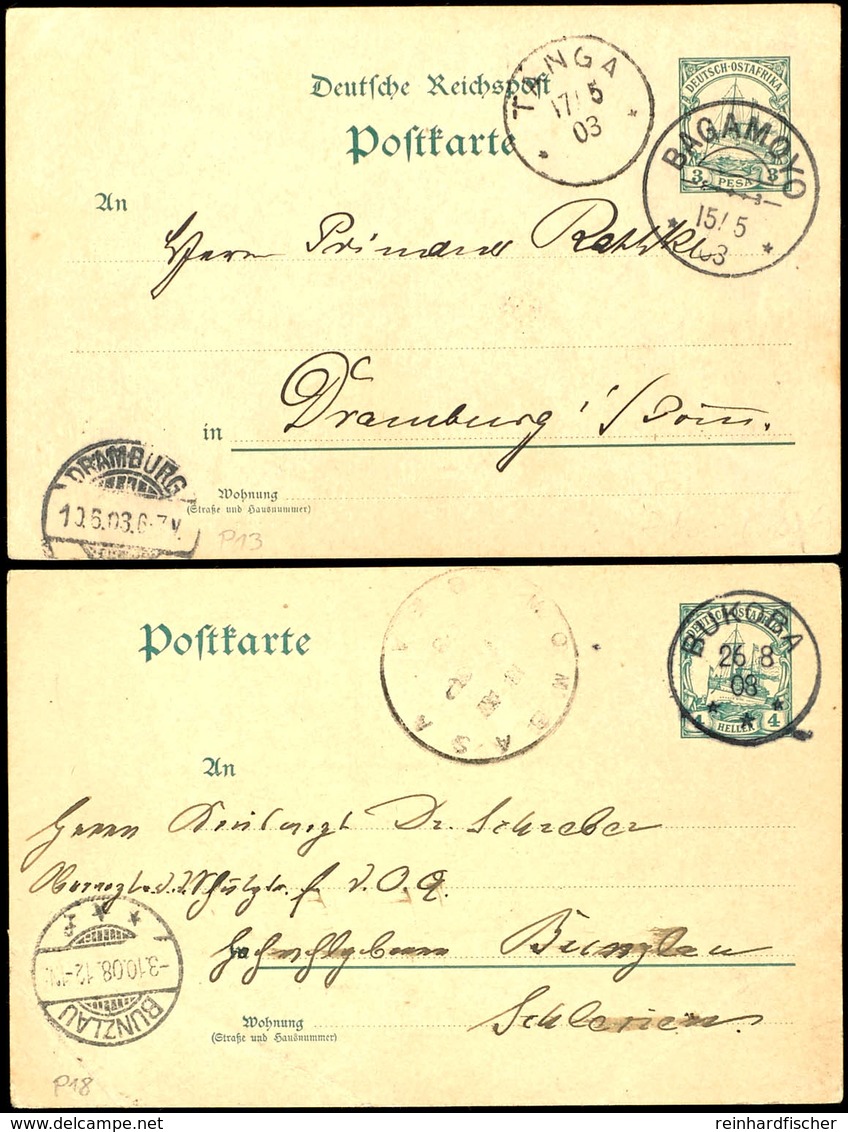 Deutsche Reichspost
Postkarte
TANGA
17/5
03
DEUTSCH-OSTAFRIKA
3 PESA 3
BAGAMOYO
15/5
03
An
Herrn Primaner
in Dramburg i/Pom.
DRAMBURG
10.6.03.6-7V.
Wohnung
(Straße und Hausnummer)
P13
Postkarte
MOMBASA
DEUTSCH-OSTAFRIKA
4 HELLER 4
BUKOBA
26/8
08
An
Herrn Dr. Schreber
f. D.O.A.
Bunzlau
Schlesien.
BUNZLAU
-3.10.08.12-1N.
Wohnung
(Straße und Hausnummer)
P18
reinhardfischer